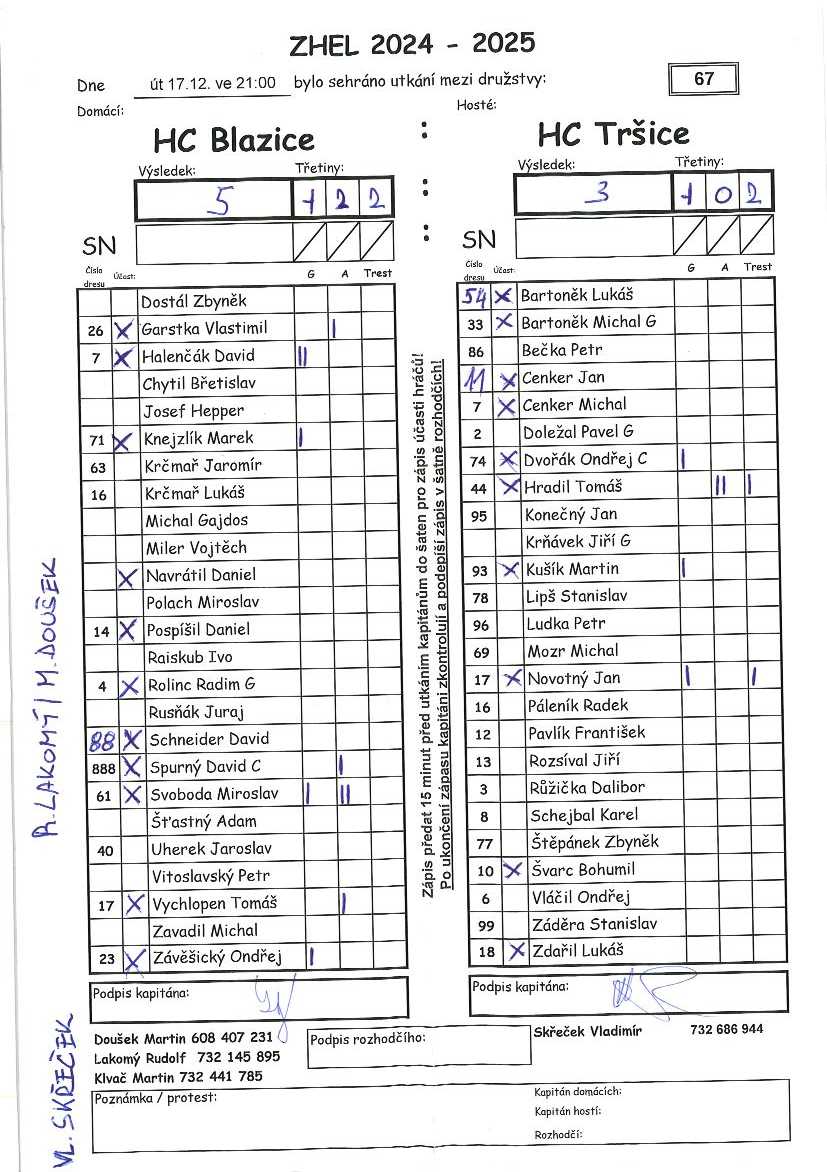 ZHEL 2024 - 2025
Dne út 17.12. ve 21:00 bylo sehráno utkání mezi družstvy: 67
Domácí: Hosté:
HC Blazice : HC Tršice
Výsledek: Třetiny: Výsledek: Třetiny:
5 1 2 2 : 3 1 0 2
SN : SN
Číslo dresu Účast: G A Trest
Dostál Zbyněk
26 X Garstka Vlastimil I
7 X Halenčák David II
Chytil Břetislav
Josef Hepper
71 X Knejzlík Marek I
63 Krčmař Jaromír
16 Krčmař Lukáš
Michal Gajdos
Miler Vojtěch
X Navrátil Daniel
Polach Miroslav
14 X Pospíšil Daniel
Raiskub Ivo
4 X Rolinc Radim G
Rusňák Juraj
88 X Schneider David
888 X Spurný David C I
61 X Svoboda Miroslav I II
Šťastný Adam
40 Uherek Jaroslav
Vitoslavský Petr
17 X Vychlopen Tomáš I
Zavadil Michal
23 X Závěšický Ondřej I
Podpis kapitána:
Zápis předat 15 minut před utkáním kapitánům do šaten pro zápis účasti hráčů!
Po ukončení zápasu kapitáni zkontrolují a podepíší zápis v šatně rozhodčích!
Číslo dresu Účast: G A Trest
54 X Bartoněk Lukáš
33 X Bartoněk Michal G
86 Bečka Petr
11 X Cenker Jan
7 X Cenker Michal
2 Doležal Pavel G
74 X Dvořák Ondřej C I
44 X Hradil Tomáš II I
95 Konečný Jan
Krňávek Jiří G
93 X Kušík Martin I
78 Lipš Stanislav
96 Ludka Petr
69 Mozr Michal
17 X Novotný Jan I I
16 Páleník Radek
12 Pavlík František
13 Rozsíval Jiří
3 Růžička Dalibor
8 Schejbal Karel
77 Štěpánek Zbyněk
10 X Švarc Bohumil
6 Vláčil Ondřej
99 Záděra Stanislav
18 X Zdařil Lukáš
Podpis kapitána:
Doušek Martin 608 407 231
Lakomý Rudolf 732 145 895
Klvač Martin 732 441 785
Podpis rozhodčího:
Skřeček Vladimír 732 686 944
Poznámka / protest:
Kapitán domácích:
Kapitán hostí:
Rozhodčí:
R. LAKOMÝ / M. DOUŠEK
VL. SKŘEČEK